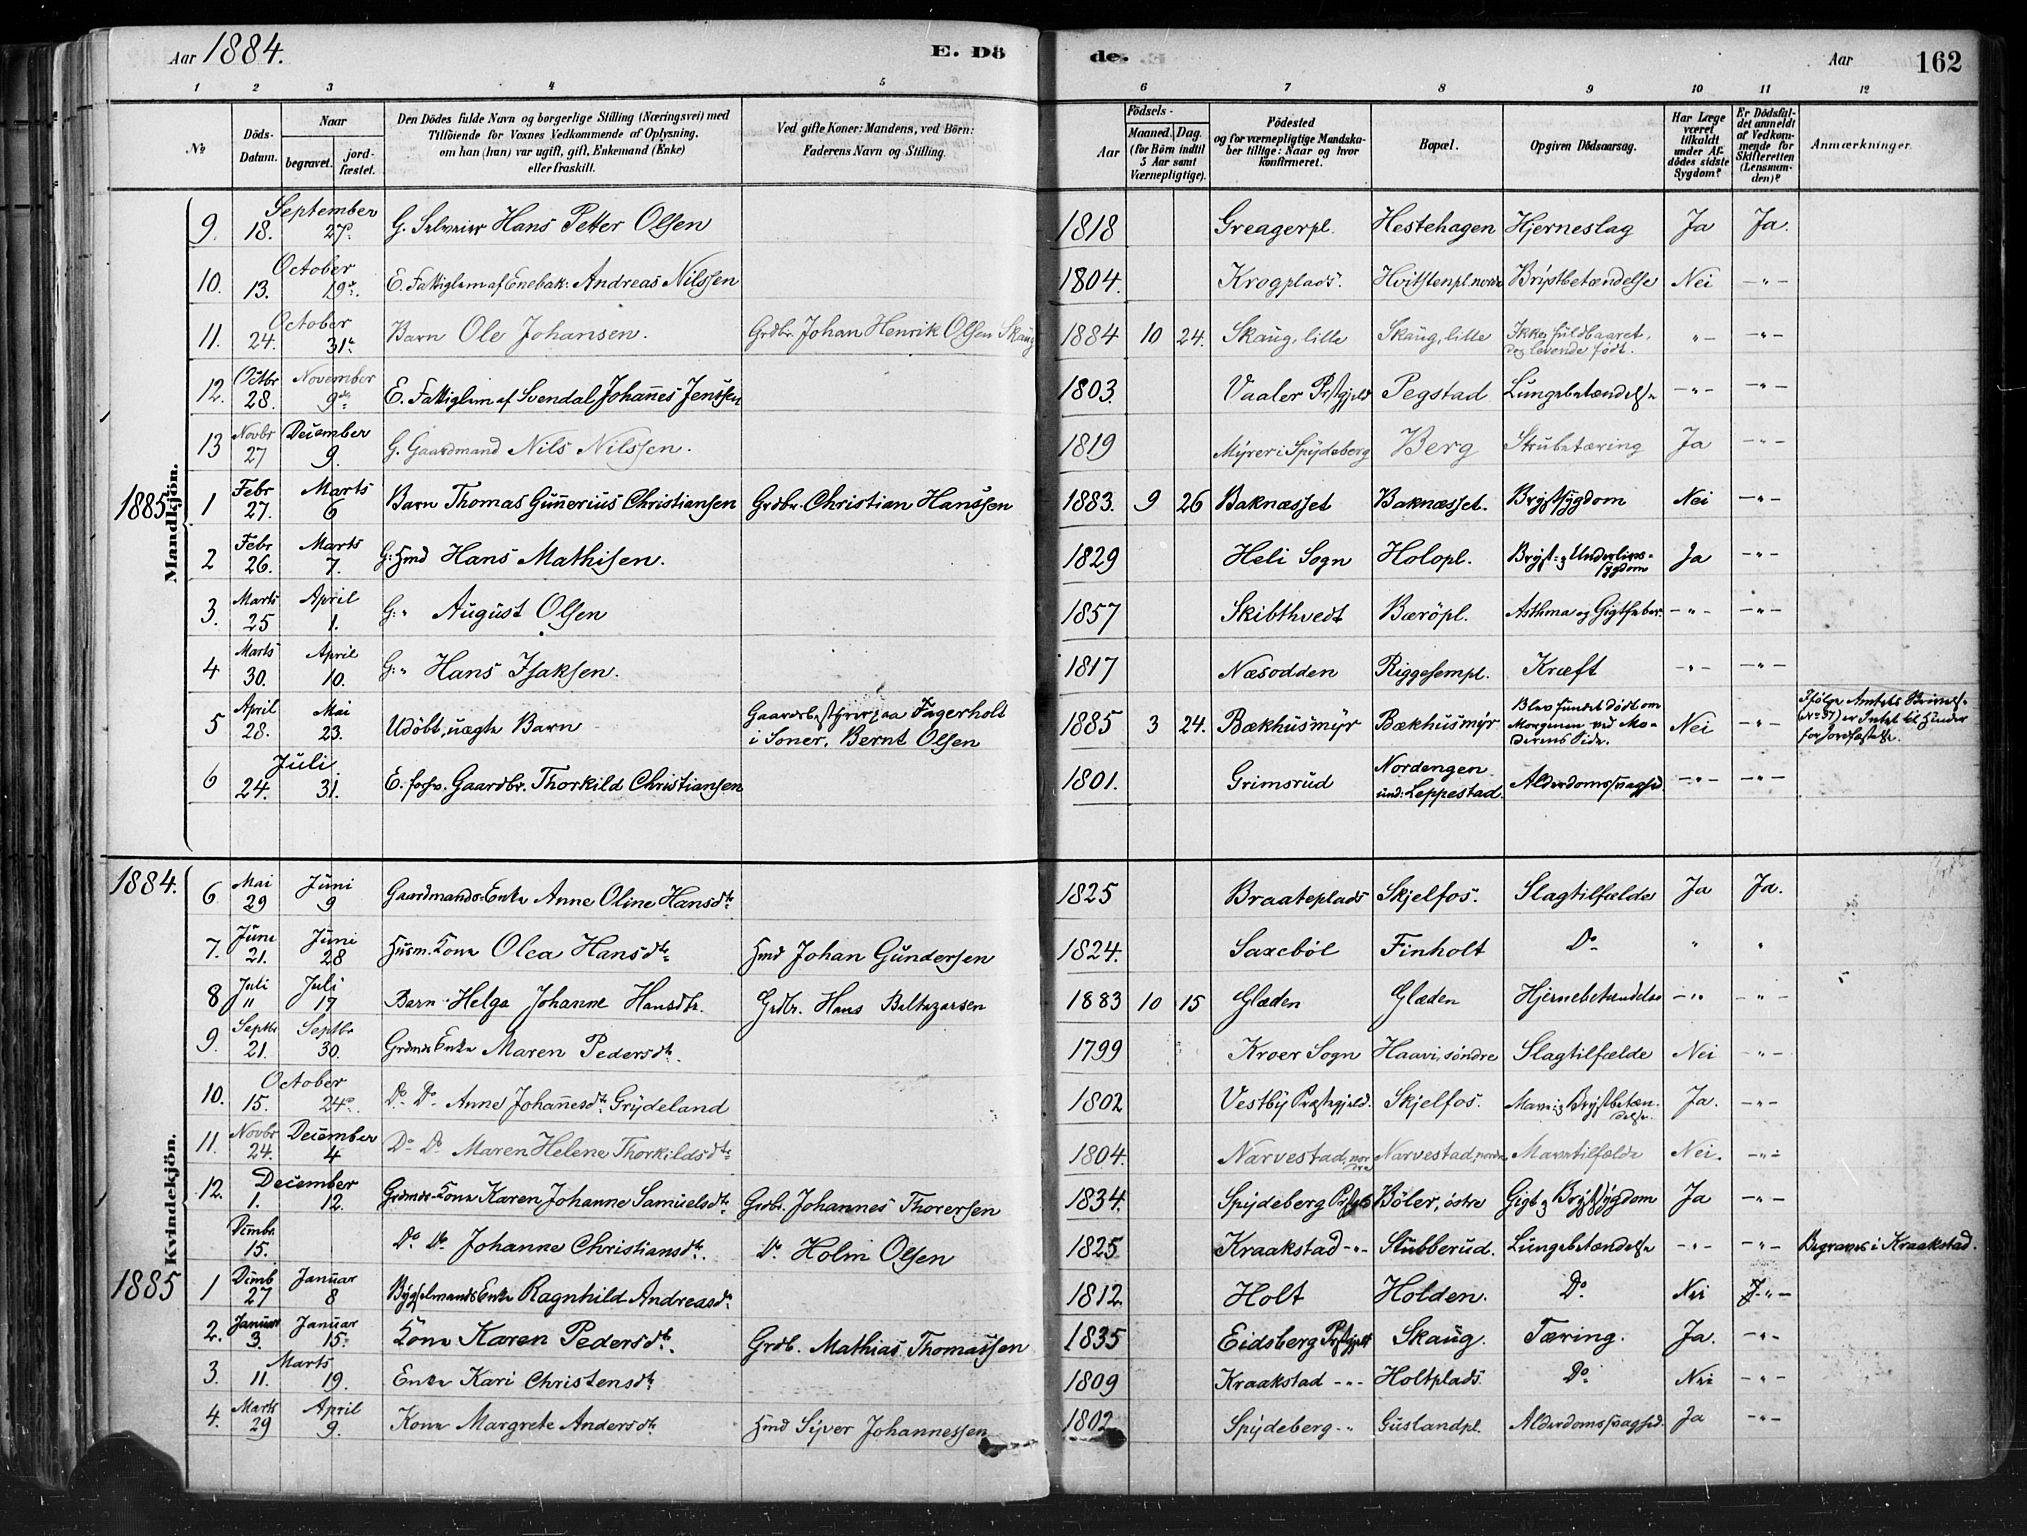 Aar 1884.
E. Dö
de.
Aar
162
1 2 3 4 5 6 7 8 9 10 11 12
No
Döds-Datum.
Naar
begravet.
jord-fæstet.
Den Dödes fulde Navn og borgerlige Stilling (Næringsvei) med
Tilföiende for Voxnes Vedkommende af Oplysning,
om han (hun) var ugift, gift, Enkemand (Enke)
eller fraskilt.
Ved gifte Koner: Mandens, ved Börn:
Faderens Navn og Stilling.
Födsels-
Aar
Maaned. Dag.
(for Börn indtil
5 Aar samt
Værnepligtige).
Födested
og for værnepligtige Mandska-
ber tillige: Naar og hvor
konfirmeret.
Bopæl.
Opgiven Dödsaarsag.
Har Læge
været
tilkaldt
under Af-
dödes sidste
Sygdom?
Er Dödsfal-
det anmeldt
af Vedkom-
mende for
Skifteretten
(Lensman-
den)?
Anmærkninger.
Mandkjön.
9. September 18. 27. G. Selveier Hans Petter Olsen 1818 Greagerpl. Hestehagen Hjerneslag Ja Ja.
10. October 13. 19de. E. Fattiglem af Enebak: Andreas Nilssen 1804. Krogplads. Hvitstenpl. nordre Brystbetændelse Nei -"-
11. October 24. 31te. Barn Ole Johansen. Grdbr. Johan Henrik Olsen Skaug 1884 10 24. Skaug, lille Skaug, lille Ikke fuldbaaret, dog levende født. "- -"-
12. Octbr 28. November 9de. E. Fattiglem af Svendal Johannes Jenssen 1803. Vaaler Prstgjeld Pegstad Lungebetændelse -"- -"-
13 Novbr 27 December 9. G. Gaardmand Nils Nilssen. 1819 Myrer i Spydeberg Berg Strubetæring Ja -"-
1885
1 Febr 27. Marts 6 Barn Thomas Gunnerius Christiansen Grdbr. Christian Hanssen 1883. 9 26 Baknæsset Baknæsset. Brystsygdom Nei -"-
2 Febr 26. Marts 7. G: Hmd Hans Mathisen. 1829 Heli Sogn Holopl. Bryst- og Underlivs-sygdom Ja -"-
3. Marts 25 April 1. G: " August Olsen 1857 Skibthvedt Bærøpl. Asthma og Gigtfeber. -"- -"-
4 Marts 30. April 10. G: " Hans Isaksen. 1817 Næsodden Riggesempl. Kræft -"- -"-
5 April 28. Mai 23. Udøbt, uægte Barn Gaardbestyrer paa Fagerholt i Soner, Bernt Olsen 1885 3 24. Bækhusmyr Bækhusmyr Blev fundet dødt om Morgenen ved Moderens Side. Nei -"- Ifølge Amtets er Intet til Hinder for Jordfæstelse.
6 Juli 24. 31. E. forhv. Gaardbr. Thorkild Christiansen 1801. Grimsrud Nordengen und: Leppestad. Alderdomssvaghed. -"- -"-
Kvindekjön.
1884.
6 Mai 29 Juni 9 Gaardmands-Enke Anne Oline Hansdtr 1825 Braateplads Skjelfos. Slagtilfælde Ja Ja.
7. Juni 21. Juni 28 Husm. Kone Olea Hansdtr Hmd Johan Gundersen 1824. Saxebøl Finholt Do " "
8 Juli " Juli 17 Barn Helga Johanne Hansdtr. Grdbr. Hans Baltazarsen 1883 10 15 Glæden Glæden Hjernebetændelse -"- -"-
9. Septbr 21. Septbr 30. Grdmds Enke Maren Pedersdtr. 1799 Kroer Sogn Haavi, søndre Slagtilfælde Nei -"-
10. October 15. 24de. Do Do Anne Johannesdtr Grydeland 1802 Vestby Præstegjeld. Skjelfos. Mave- og Brystbetændelse. Ja. -"-
11. Novbr 24. December 4 Do Do Maren Helene Thorkildsdtr 1804. Narvestad, nordre Narvestad, nordre Mavetilfælde Nei. -"-
12. December 1. 12. Grdmds-Kone Karen Johanne Samuelsdtr. Grdbr. Johannes Thorersen 1834. Spydeberg Prstgjld Bøler, østre Gigt og Brystsygdom Ja -"-
Dcmbr. 15. Do Do Johanne Christiansdtr. Do Holm Olsen 1825. Kraakstad -"- Stubberud. Lungebetændelse -"- -"- Begraves i Kraakstad.
1885
1 Dcmb 27 Januar 8 Bygselmands Enke Ragnhild Andreasdr 1812. Holt Holden. Do Nei J. "-
2. Januar 3. Januar 15. Kone Karen Pedersdtr. Grdb. Mathias Thomassen 1835 Eidsberg Prstgjeld Skaug. Tæring. Ja. -"-
3. Marts 11. 19. Enke Kari Christensdtr 1809 Kraakstad -"- Holtplads Do Nei -"-
4. Marts 29 April 9. Kone Margrete Andersdtr. Hmd Syver Johannessen 1802 Spydeberg -"- Guslandpl. Alderdomssvaghed. Ja -"-